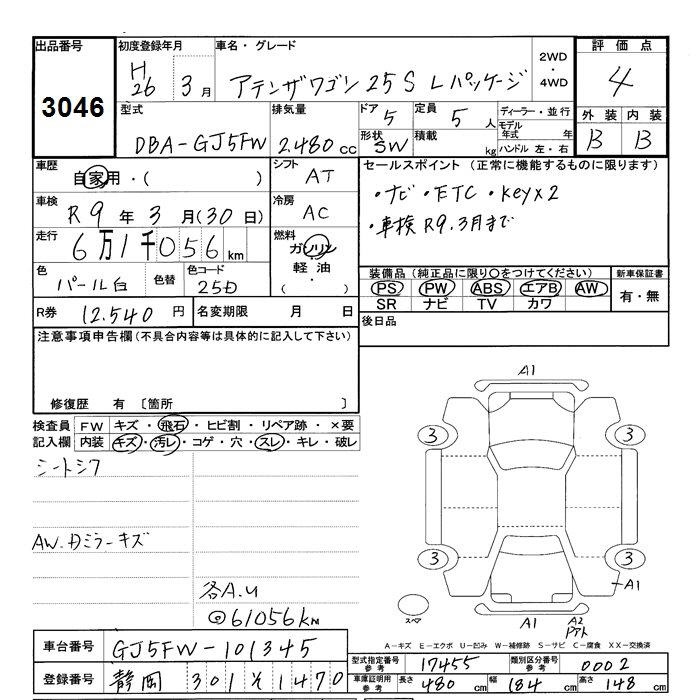 出品番号 初度登録年月 車名・グレード 2WD・4WD 評価点
3046 H26 3月 アテンザワゴン 25S Lパッケージ 4
型式 排気量 ドア 5 定員 5人 ディーラー・並行 外装 内装
DBA-GJ5FW 2.480cc 形状 SW 積載 kg モデル年式 年 B B
ハンドル 左・右
車歴 自家用・( ) シフト AT セールスポイント(正常に機能するものに限ります)
車検 R9年3月(30日) 冷房 AC ・ナビ・ETC・Key×2
・車検R9.3月まで
走行 6万1千056km 燃料 ガソリン 軽油・( )
色 パール白 色替 色コード 25D 装備品(純正品に限り○をつけてください) 新車保証書
PS PW ABS エアB AW 有・無
SR ナビ TV カワ
R券 12.540円 名変期限 月 日 後日品
注意事項申告欄(不具合内容等は具体的に記入して下さい)
修復歴 有 〔箇所 〕
検査員 FW キズ・飛石・ヒビ割・リペア跡・×要
記入欄 内装 キズ・汚レ・コゲ・穴・スレ・キレ・破レ
シートシワ
AW.Dミラーキズ
各A.U
◎61056km
A1
3 3
3 3
A1
スペア A1 A2
A-キズ E-エクボ U-凹ミ W-補修跡 S-サビ C-腐食 XX-交換済
車台番号 GJ5FW-101345 型式指定番号 参考 17455 類別区分番号 参考 0002
登録番号 静岡 301 そ 1470 車庫証明用 参考 長さ 480cm 幅 184cm 高さ 148cm